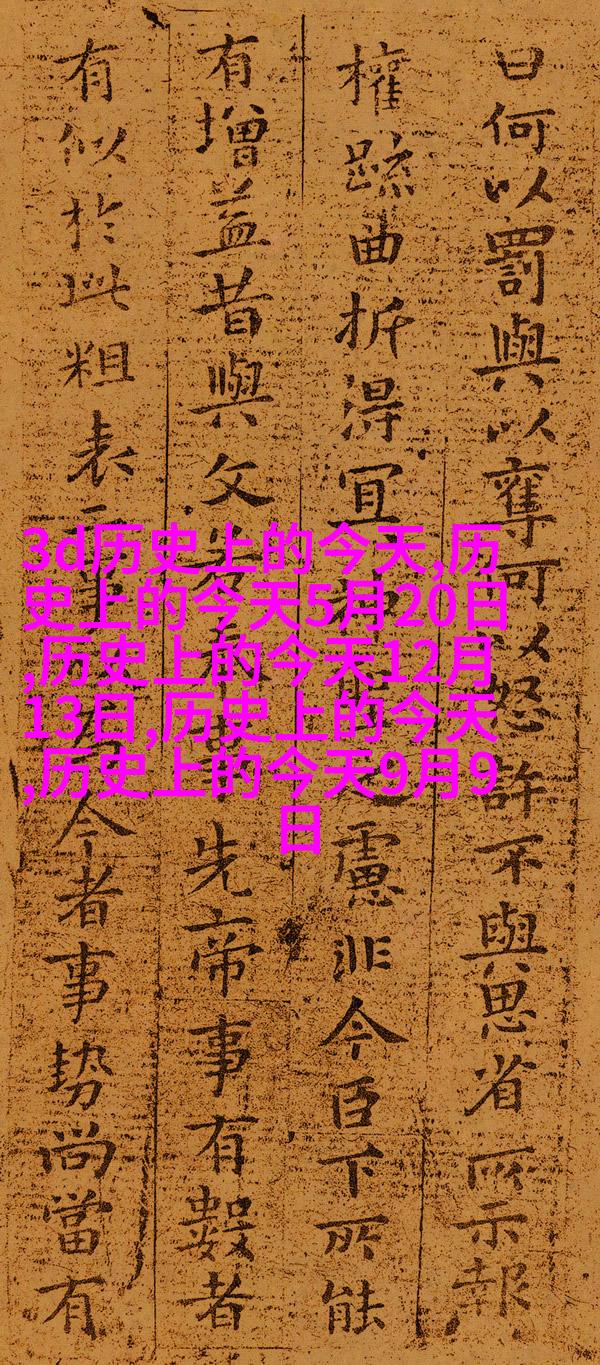 3d历史上的今天,历
史上的今天5月20日
,历史上的今天12月
13日,历史上的今天
,历史上的今天9月9
日
曰何以罰與以奪可以怒許不與思省所示報
權疏曲折得宜神聖之慮非今臣下所能
有增益昔與文若奉事先帝事有數者
有似於此粗表二事以為今者事勢尚當有